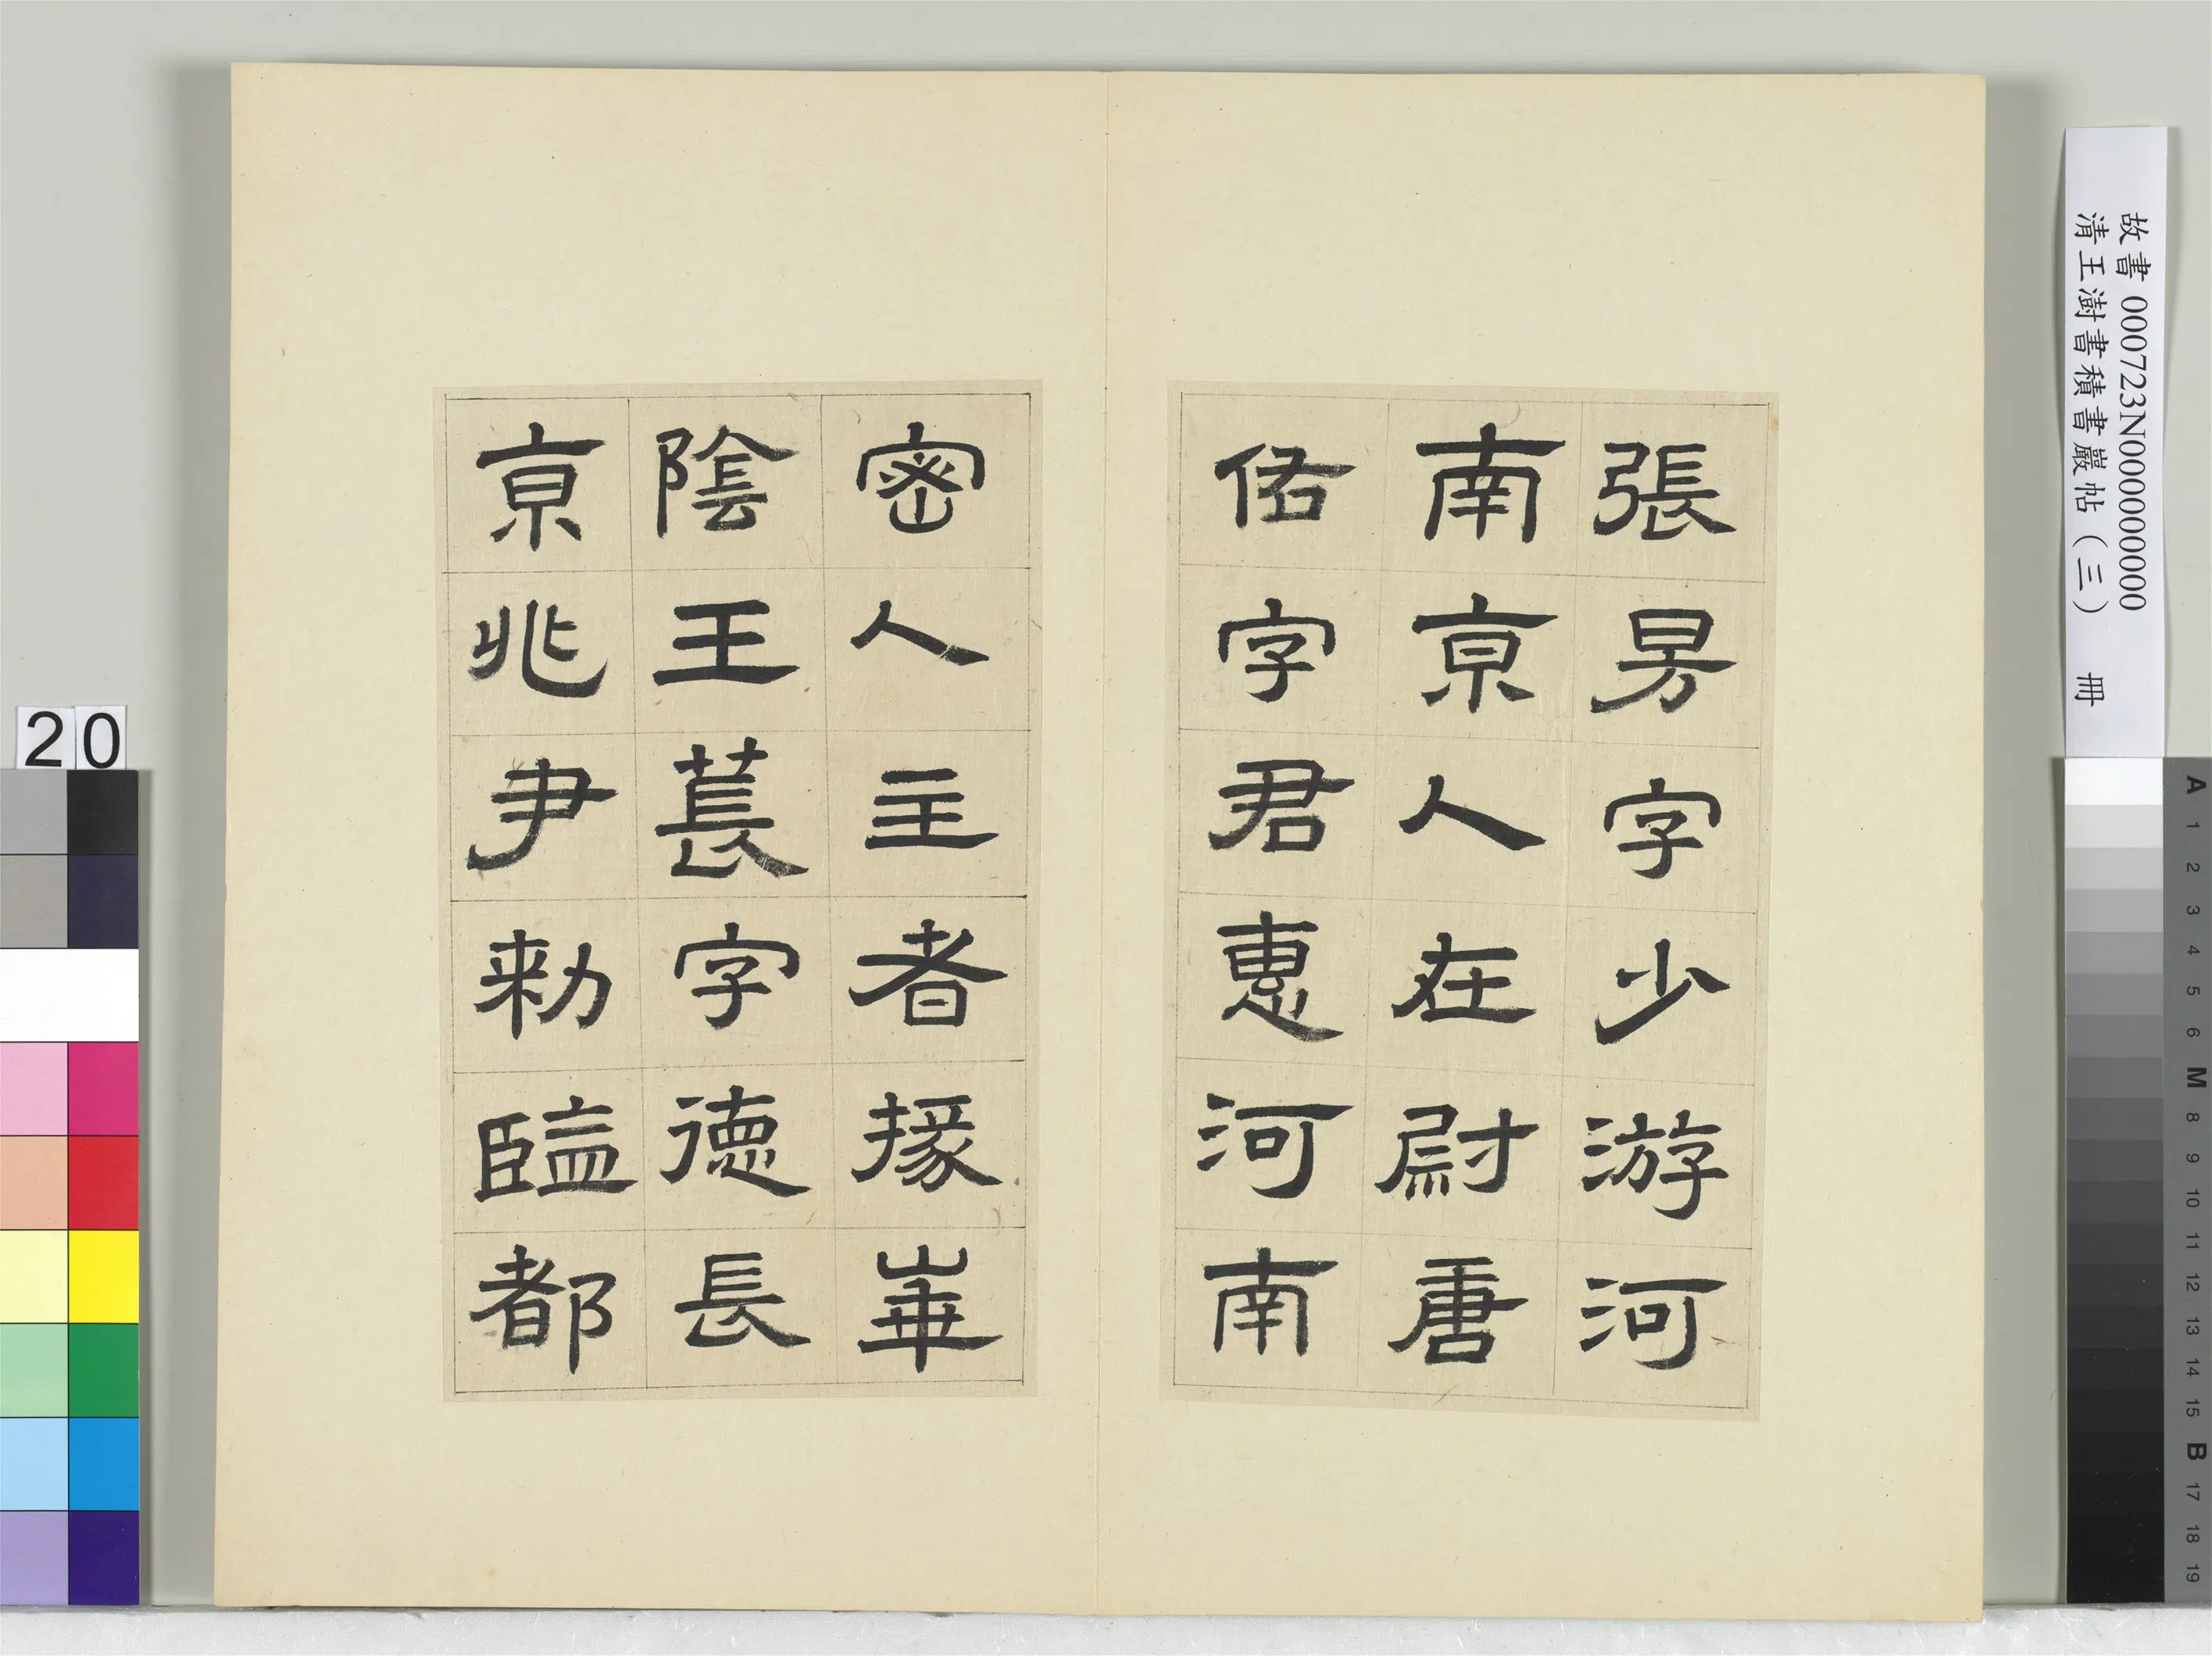 張昉字少游河
南京人在尉唐
佑字君惠河南
密人主者掾崋
陰王萇字德長
京兆尹勑監都
故書 000723N000000000
清王澍書積書巖帖（三） 冊
20
A
1
2
3
4
5
6
M
8
9
10
11
12
13
14
15
B
17
18
19